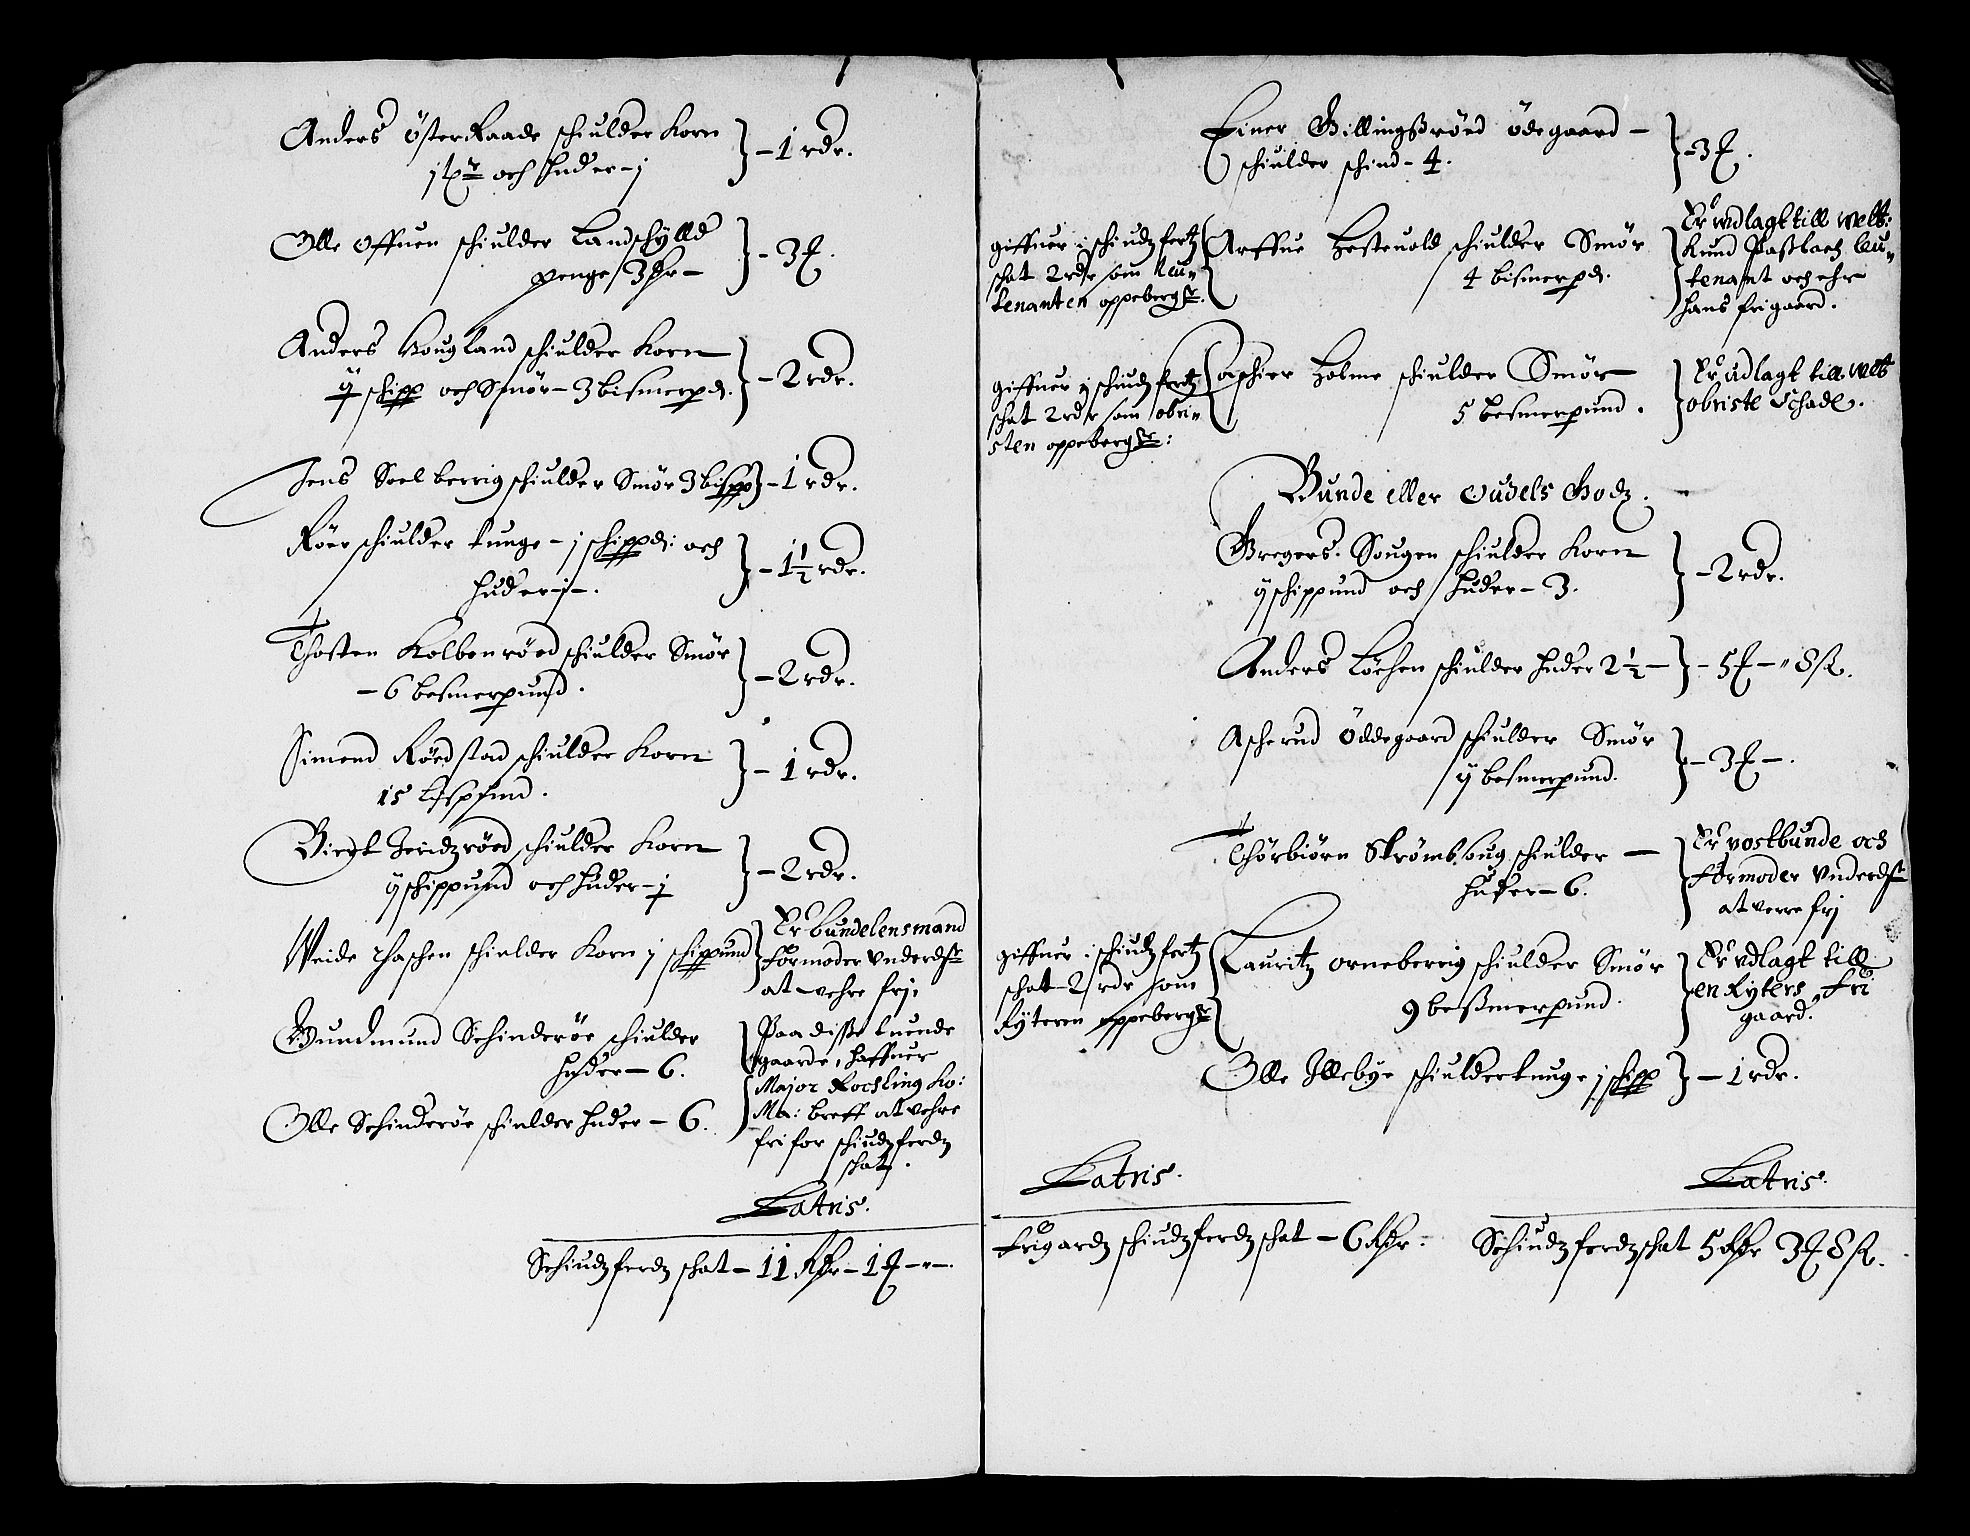 Anders Österraade schiulder Korn
j och huder - j } - 1 rdr.
Olle Offuen schiulder Landschylld
penge 3 - } - 3
Anders Hougland schiulder Korn
ij schipp och Smör - 3 bismerpd. } - 2 rdr.
Jens Soelberrig schiulder Smör 3 bispd } - 1 rdr.
Röer schiulder tunge - j schippd: och
huder - j - . } - 1½ rdr.
Thosten Kolbenröed schiulder Smör
- 6 besmerpund. } - 2 rdr.
Simend Röedstad schiulder Korn
15 Lispund. } - 1 rdr.
Biegt schiulder Korn
ij schippund och huder - j } - 2 rdr.
Weide Thaschen schiulder Korn j schippund
Er bundelensmand
formoder Underdst
at vehre frj.
Gundmund Schinderöe schiulder
huder - 6.
Olle Schinderöe schiulder huder - 6.
Paa disse tuende
gaarde, haffuer
Major Rochling Ko:
Ma: breff at vehre
fri for schiudzferdz
schat.
Latris.
Schiudzferdz schat - 11 Rdr - 1
Einer Gillingßröed ödegaard -
schiulder schind - 4. } - 3
giffuer i schiudzfertz
schat 2 rdr som leu-
tenanten oppebergr.
Arffue Hesteuold schiulder Smör
4 bismerpd.
Er udlagt till welb:
Knud Paßlach leu-
tenant och ehr
hans frigaard.
giffuer i schiudzfertz
schat 2 rdr som obri-
sten oppebergr:
Aschier Holme schiulder Smör
5 besmerpund.
Er udlagt till welb
obriste Schade.
Bunde eller Oudels Godz.
Gregers Hougen schiulder Korn
ij schippund och huder - 3. } - 2 rdr.
Anders Löchen schiulder huder 2½ - } - 5 - 8
Ascherud Öddegaard schiulder Smör
ij besmerpund. } - 3 - .
Thörbiörn Strömbsoug schiulder -
huder - 6.
Er postbunde och
formoder Underdst
at verre frj
giffuer i schiudzfertz
schat - 2 rdr som
Ryteren oppebergr
Lauritz Orneberrig schiulder Smör
9 beßmerpund.
Er udlagt till
en Ryters fri
gaard.
Olle Illebye schiulder tunge j schipp } - 1 rdr.
Latris.
Frigardz schiudzferdz schat - 6 Rdr.
Latris.
Schiudzferdz schat 5 Rdr 3 8